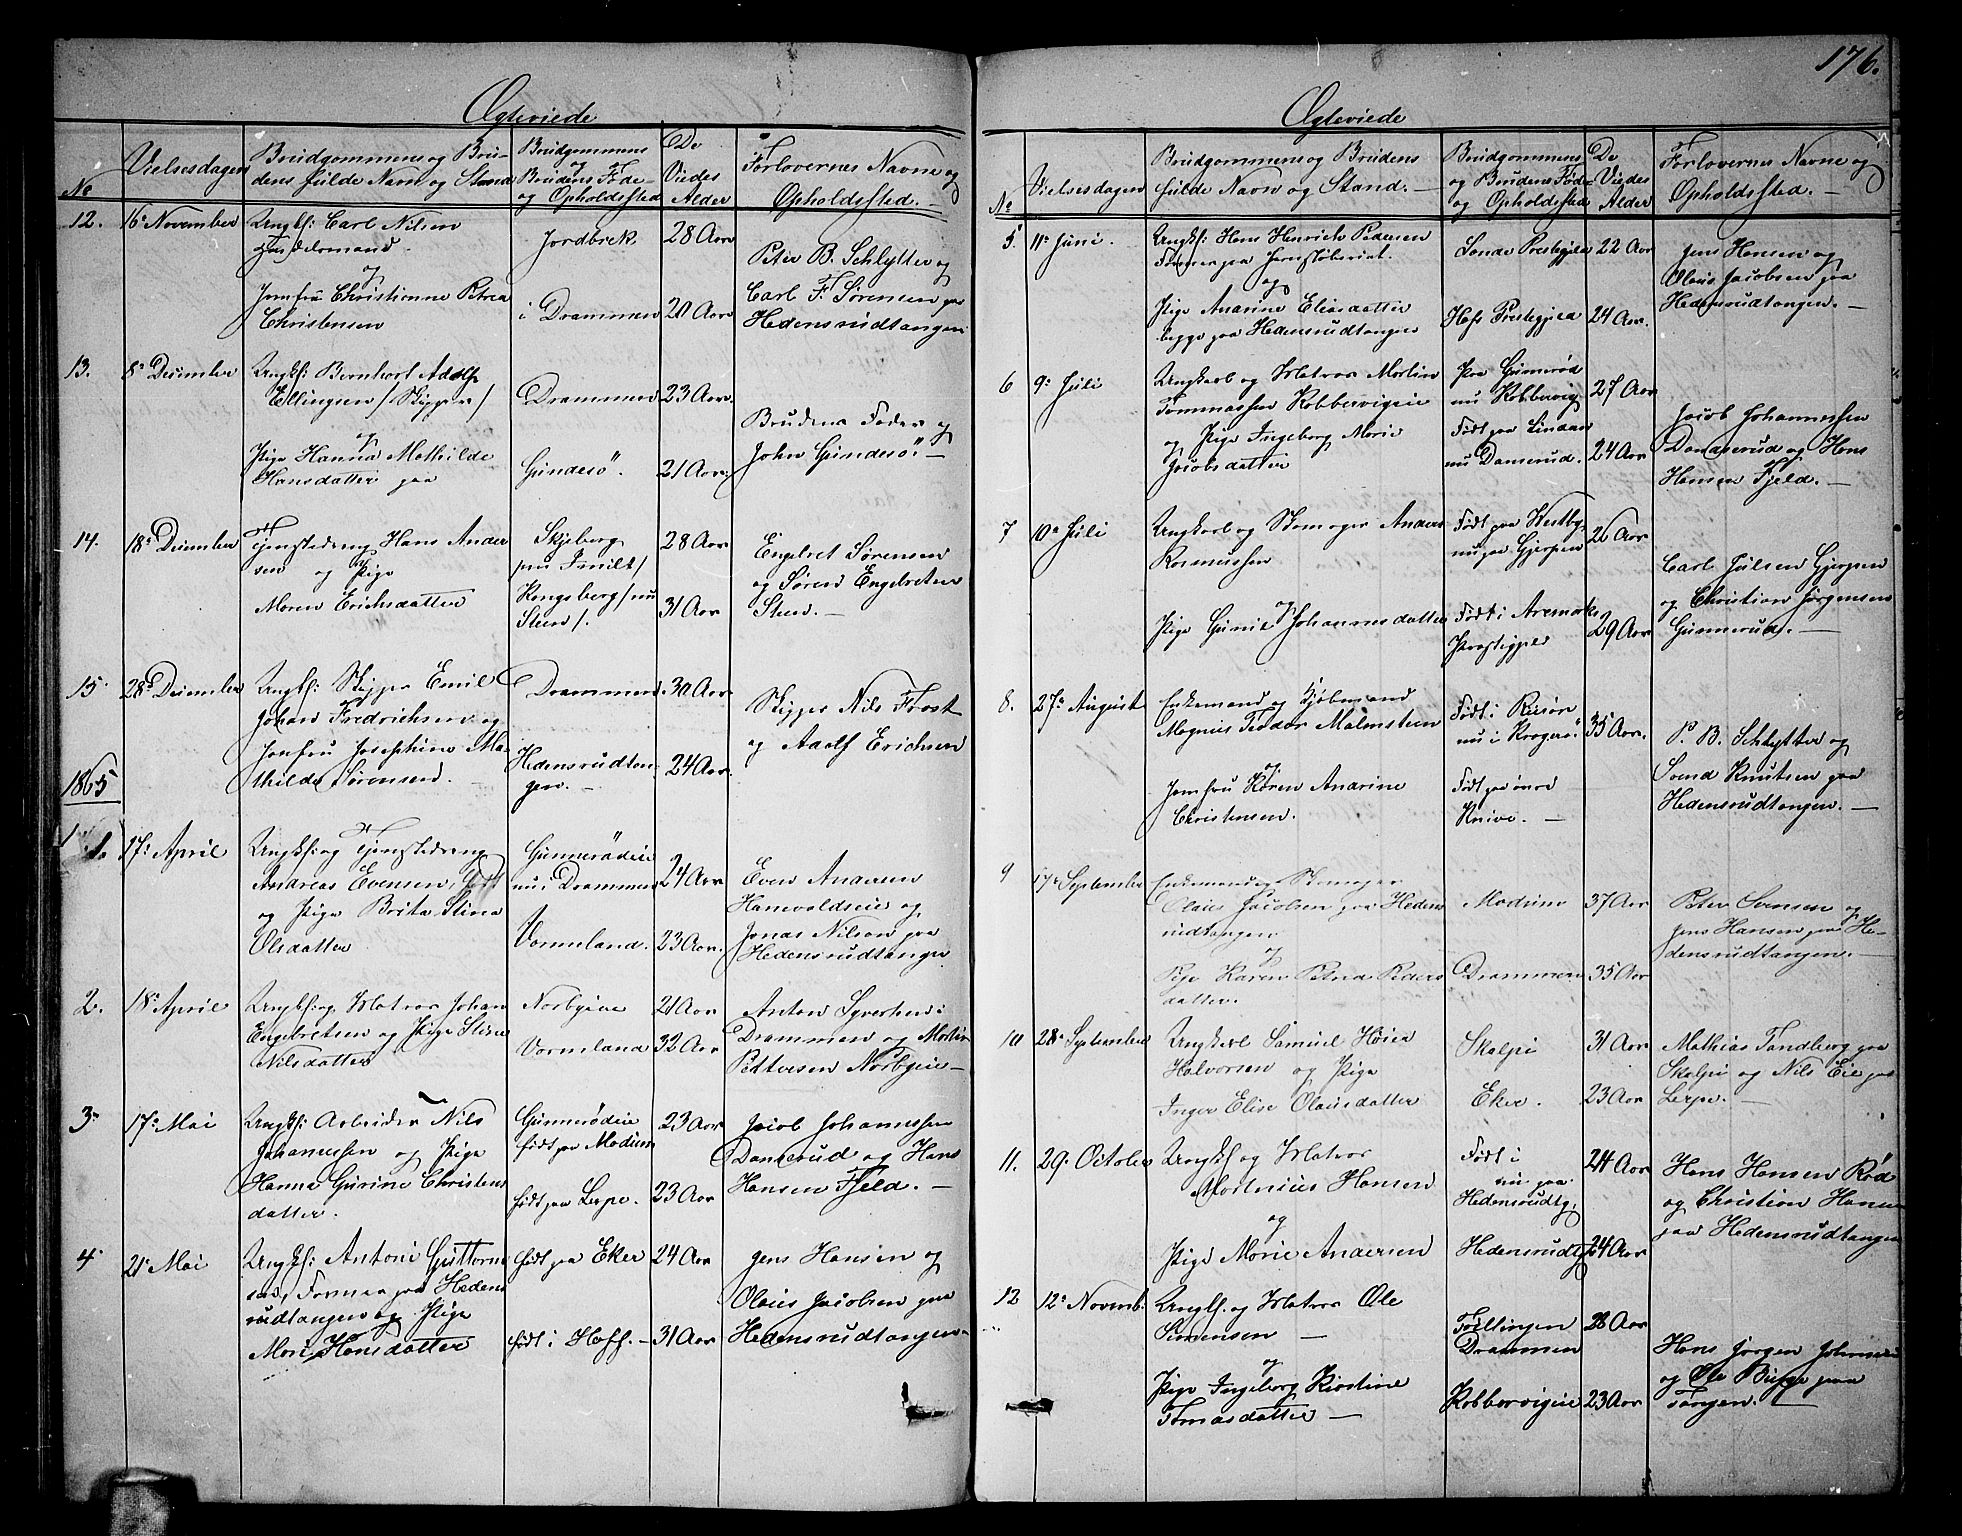 176.
Ægteviede
No
Vielsesdagen
Brudgommens og Bru-
dens fulde Navn og Stand
Brudgommens
og
Brudens Føde-
og Opholdssted
De
Viedes
Alder
Forlovernes Navne og
Opholdssted. –
12.
16de November
Ungkf: Carl Nilsen
og
Jomfru Christianne Petrea
Christensen
i Drammen
28 Aar
20 Aar
Peter B. Schlytter og
Carl F. Sørensen paa
Hedensrudtangen
13.
8de December
Ungkf: Bernhart Adolf
Ellingsen / Skipper /
og
Pige Hanna Mathilde
Hansdatter paa
Drammen
Gundesö.
23 Aar.
21 Aar.
Brudens Fader og
John Gundesö. –
14.
18de December
Tjenstedreng Hans Ander
sen og Pige
Maren Erichsdatter
Skjeberg
Kongsberg / nu
Steen /.
28 Aar
31 Aar
Engebret Sørensen
og Søren Engebretsen
Steen. –
15.
28de December
Ungkf: Skipper Emil
Johan Fredrichsen og
Jomfru Josephine Ma-
thilde Sørensen. –
Drammen.
Hedensrudtan-
gen. –
30 Aar
24 Aar.
Skipper Nils Frost
og Adolf Erichsen
1865
1.
17de April
Ungkf: og Tjenstedreng
Andreas Evensen,
og Pige Brita Stina
Olsdatter
Gunnerödeie
nu i Drammen
Vermeland.
24 Aar
23 Aar.
Even Andersen
Hanevoldseie og
Jonas Nilsen paa
Hedensrudtangen
2.
18de April
Ungkf. og Matros Johan
Engebretsen og Pige Stine
Nilsdatter
Norbyeie
Vermeland
21 Aar
32 Aar
Anton Syvertsen i
Drammen og Martin
Pettersen Norbyeie –
3.
17de Mai
Ungkf: Arbeider Nils
Johannessen og Pige
Hanna Gurine Christens
datter.
Gunnerödeie
født paa Modum
født paa Lerpe.
23 Aar
23 Aar
Jacob Johannessen
Danserud og Hans
Hansen Fjeld. –
4.
21de Mai
Ungkf: Antoni Guttorm
sen, Former paa Hedens
rudtangen og Pige
Mari Hansdatter
født paa Eker
født i Hoff. –
24 Aar
31 Aar
Jens Hansen og
Olaus Jacobsen paa
Hedensrudtangen.
Ægteviede
No
Vielsesdagen
Brudgommens og Brudens
fulde Navn og Stand. –
Brudgommens
og Brudens Føde-
og Opholdssted
De
Viedes
Alder
Forlovernes Navne og
Opholdssted. –
5
11te Juni.
Ungkf: Hans Henrich Pedersen
Former paa Jernstøberiet.
og
Pige Anarine Eliasdatter
begge paa Hedensrudtangen
Sande Prestegjeld
Hofs Prestegjeld
22 Aar
24 Aar.
Jens Hansen og
Olaus Jacobsen paa
Hedensrudtangen. –
6
9de Juli
Ungkarl og Matros Martin
Tommassen Kobbervigeie
og Pige Ingeborg Marie
Jacobsdatter
Paa Gunnerød
nu Kobbervig
Født paa Lindaas
nu Danserud.
27 Aar
24 Aar
Jacob Johannessen
Danserud og Hans
Hansen Fjeld. –
7
10de Juli
Ungkarl og Skomager Anders
Rasmussen
og
Pige Gunil Johannesdatter
Født paa Westby
nu paa Gjerpen
Født i Aremarks
Præstegjeld
26 Aar
29 Aar
Carl Julsen Gjerpen
og Christian Jørgensen
Gunnerud. –
8.
27de August
Enkemand og Kjøbmand
Magnus Fedor Malmsteen
og
Jomfru Karen Anarine
Christensen.
Født i Riisøer
nu i Kragerø.
Født paa øvre
Knive. –
35 Aar.
P. B. Schlytter og
Svend Knutsen paa
Hedensrudtangen. –
9
17de September
Enkemand og Skomager
Olaus Jacobsen paa Hedens
rudtangen
og
Pige Karen Petrea Peders
datter.
Modum
Drammen
37 Aar
35 Aar
Peter Svensen og
Jens Hansen paa He-
densrudtangen. –
10
28de September
Ungkarl Samuel Høien
Halvorsen og Pige
Inger Elise Olausdatter
Skalpi
Eker.
31 Aar
23 Aar
Mathias Tandberg paa
Skalpi og Nils Eie paa
Lerpe. –
11.
29de October
Ungkf og Matros
Martinius Hansen
og
Pige Marie Andersen
Født i
nu paa
Hedensrudtg.
Hedensrudtg
24 Aar
24 Aar
Hans Hansen Rød
og Christian Hansen
paa Hedensrudtangen
12
12te Novemb.
Ungkf. og Matros Ole
Simensen –
og
Pige Ingeborg Kirstine
Tomasdatter –
Drammen
Kobbervigeie
28 Aar
23 Aar
Hans Jørgen Johnsen
og Ole Bugge paa
Tangen. –